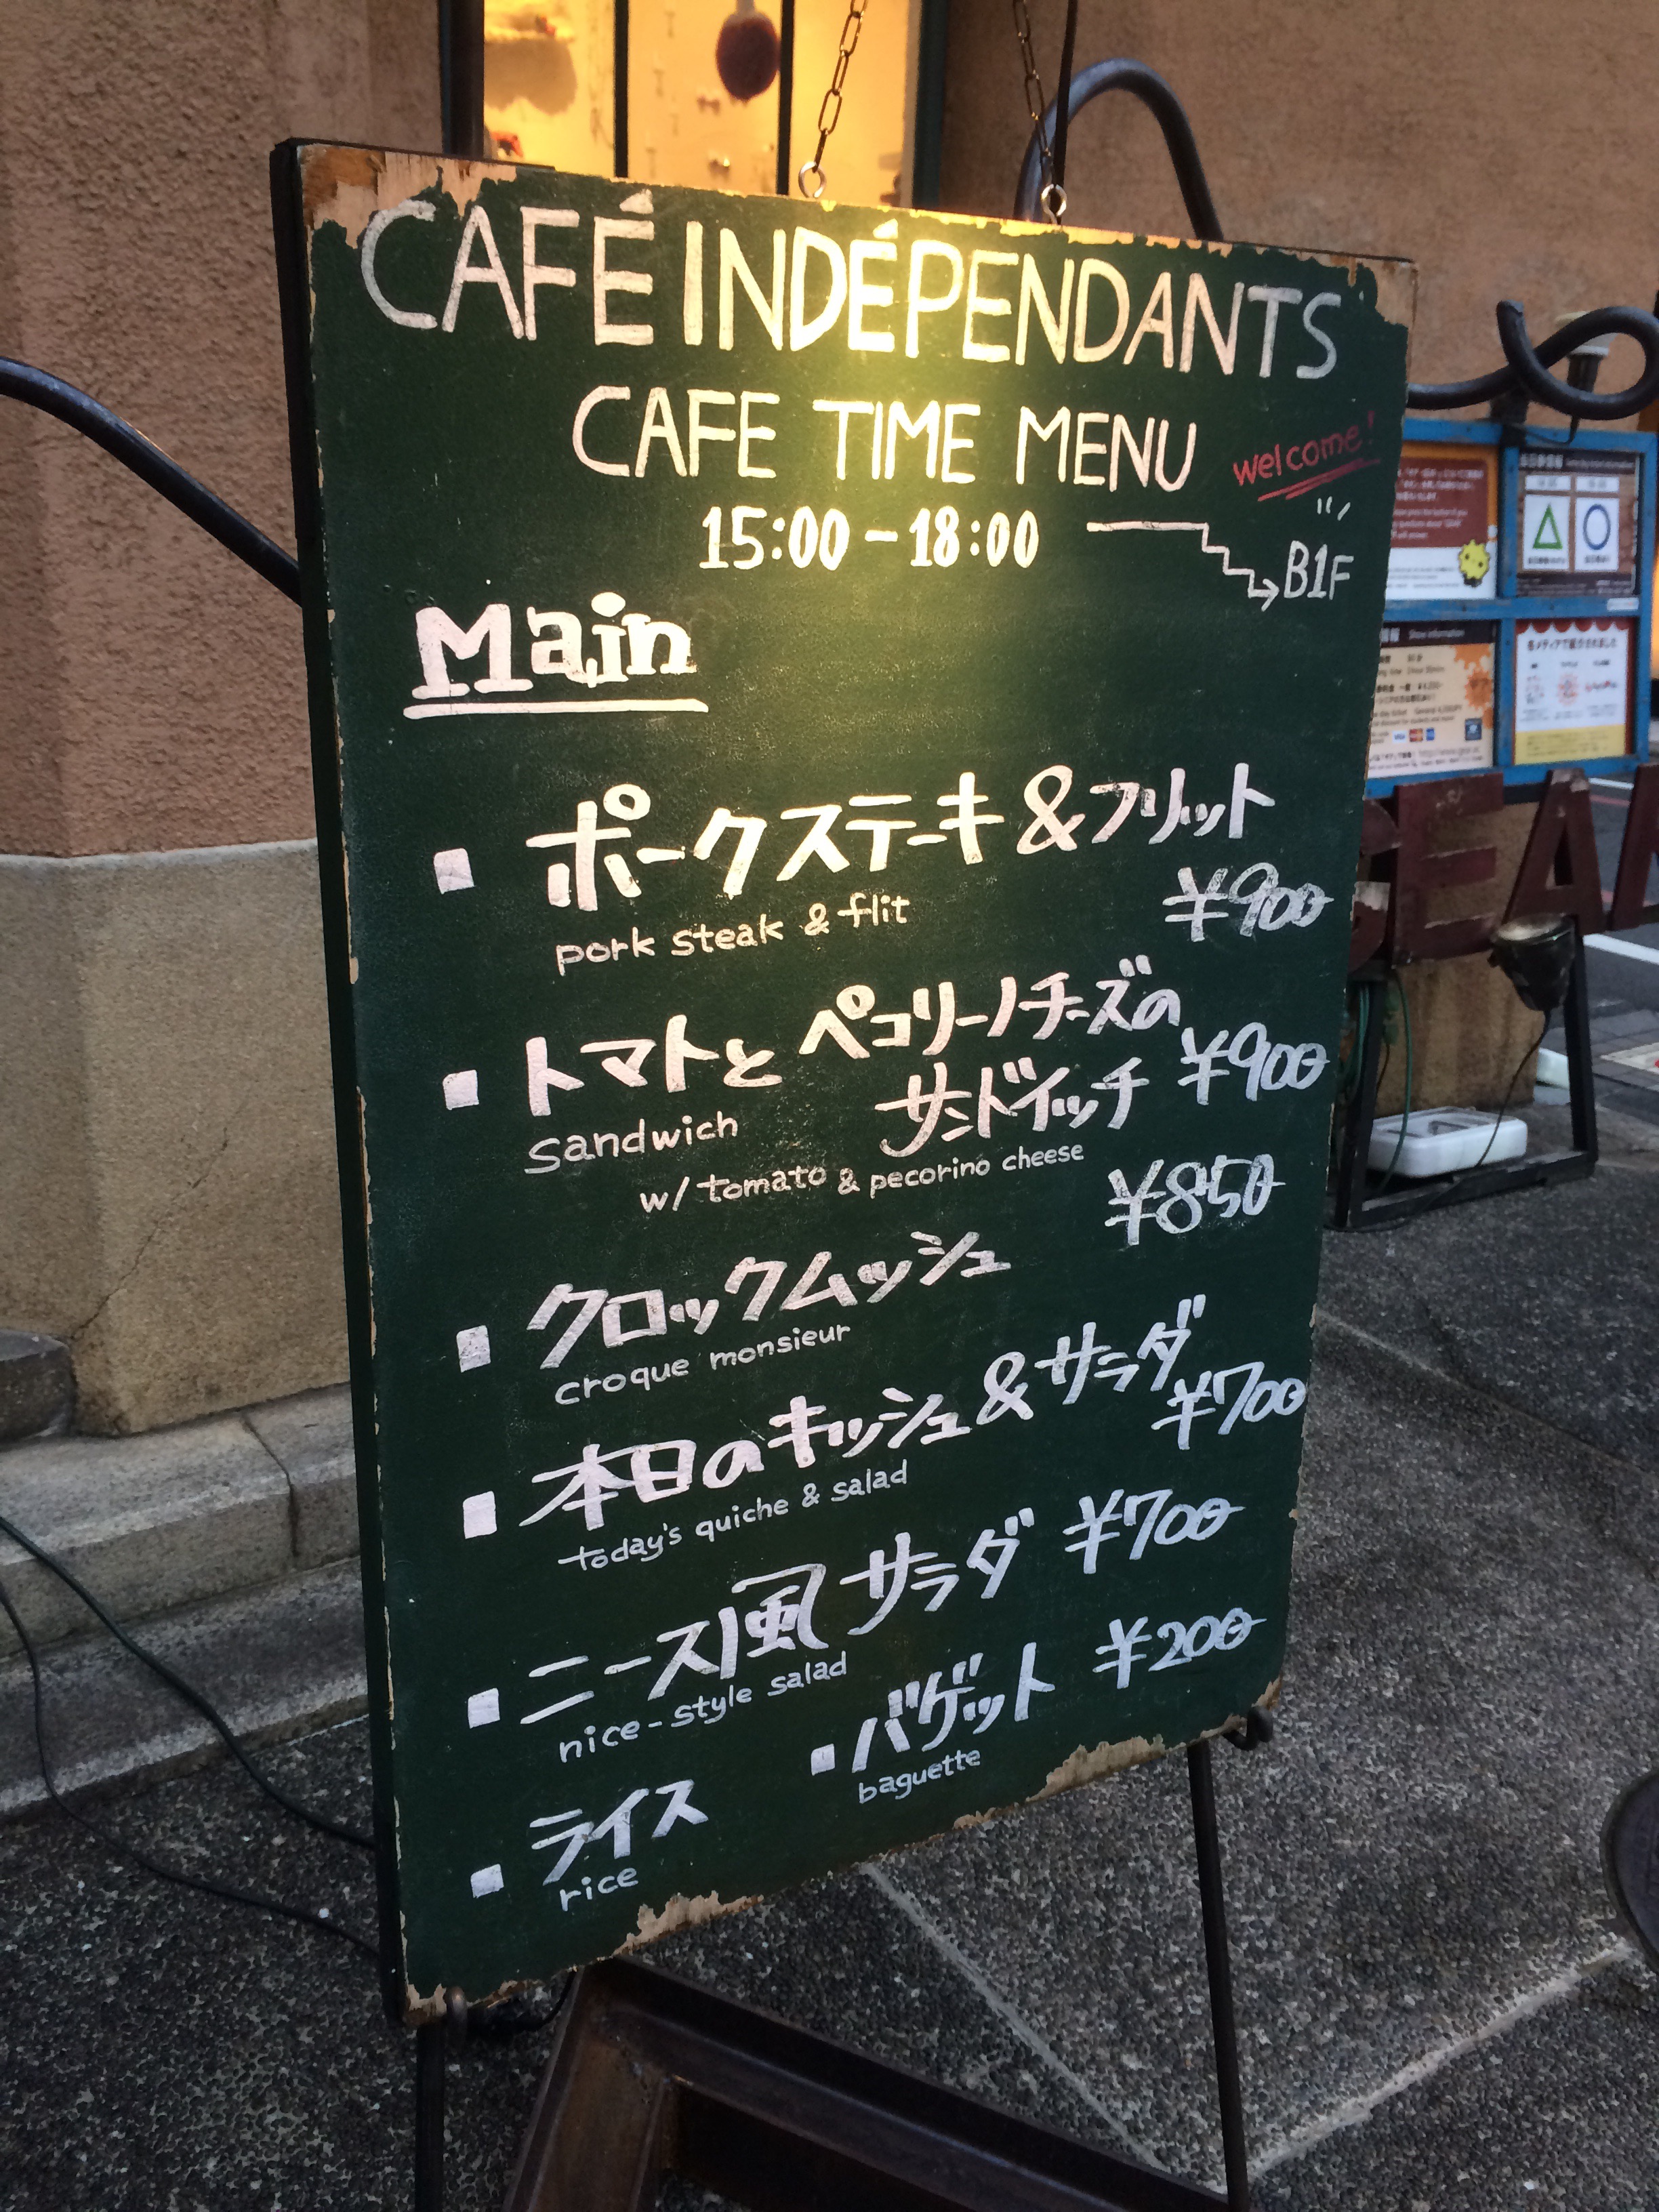 CAFÉ INDÉPENDANTS
CAFE TIME MENU
welcome!
15:00-18:00
B1F
Main
■ ポークステーキ&フリット
pork steak & flit
¥900
■ トマトとペコリーノチーズの
サンドイッチ ¥900
sandwich
w/ tomato & pecorino cheese
¥850
■ クロックムッシュ
croque monsieur
■ 本日のキッシュ&サラダ
¥700
today's quiche & salad
■ ニース風サラダ ¥700
nice-style salad
■ バゲット ¥200
baguette
■ ライス
rice
Show information
各メディアで紹介されました
GEAR